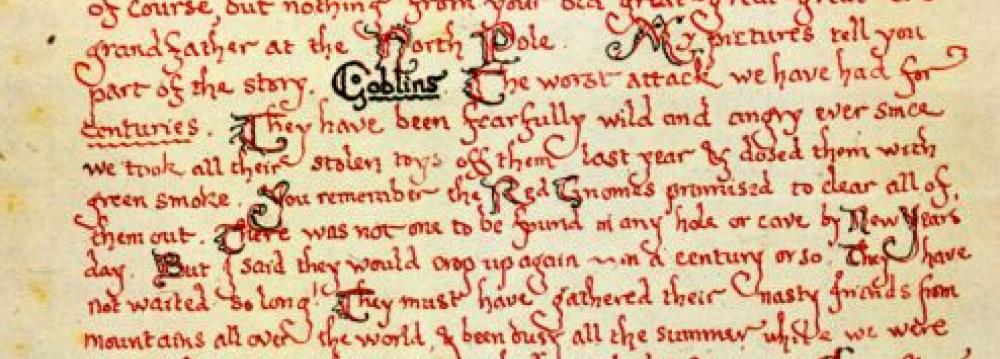 of course, but nothing from your old great-great-great
grandfather at the North Pole. My pictures tell you
part of the story. Goblins The worst attack we have had for
centuries. They have been fearfully wild and angry ever since
we took all their stolen toys off them last year & dosed them with
green smoke. You remember the Red Gnomes promised to clear all of
them out. There was not one to be found in any hole or cave by New Years
day. But I said they would crop up again — in a century or so. They have
not waited so long! They must have gathered their nasty friends from
mountains all over the world, & been busy all the summer while we were